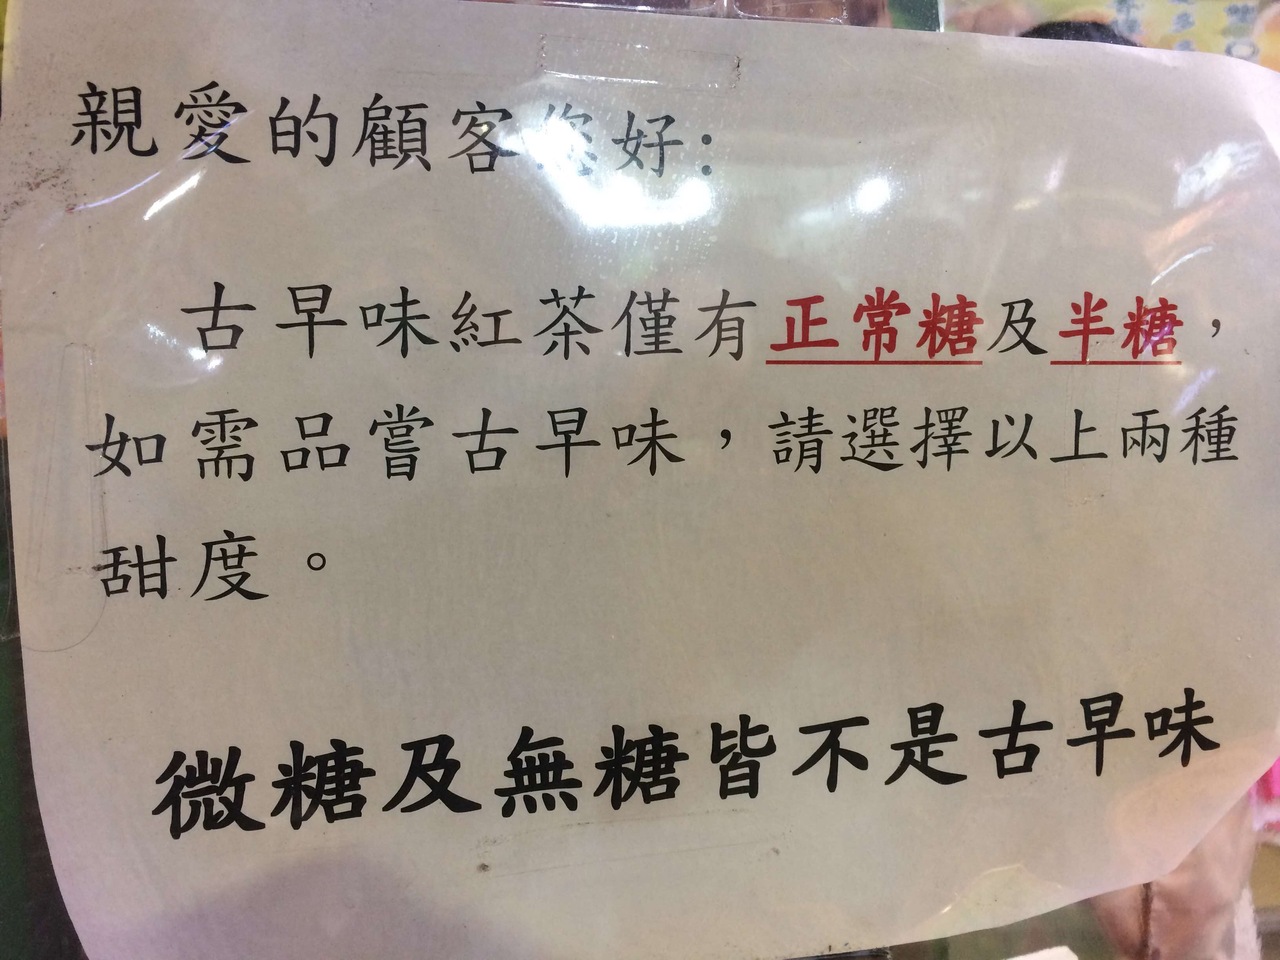 親愛的顧客您好:
古早味紅茶僅有正常糖及半糖，
如需品嘗古早味，請選擇以上兩種
甜度。
微糖及無糖皆不是古早味